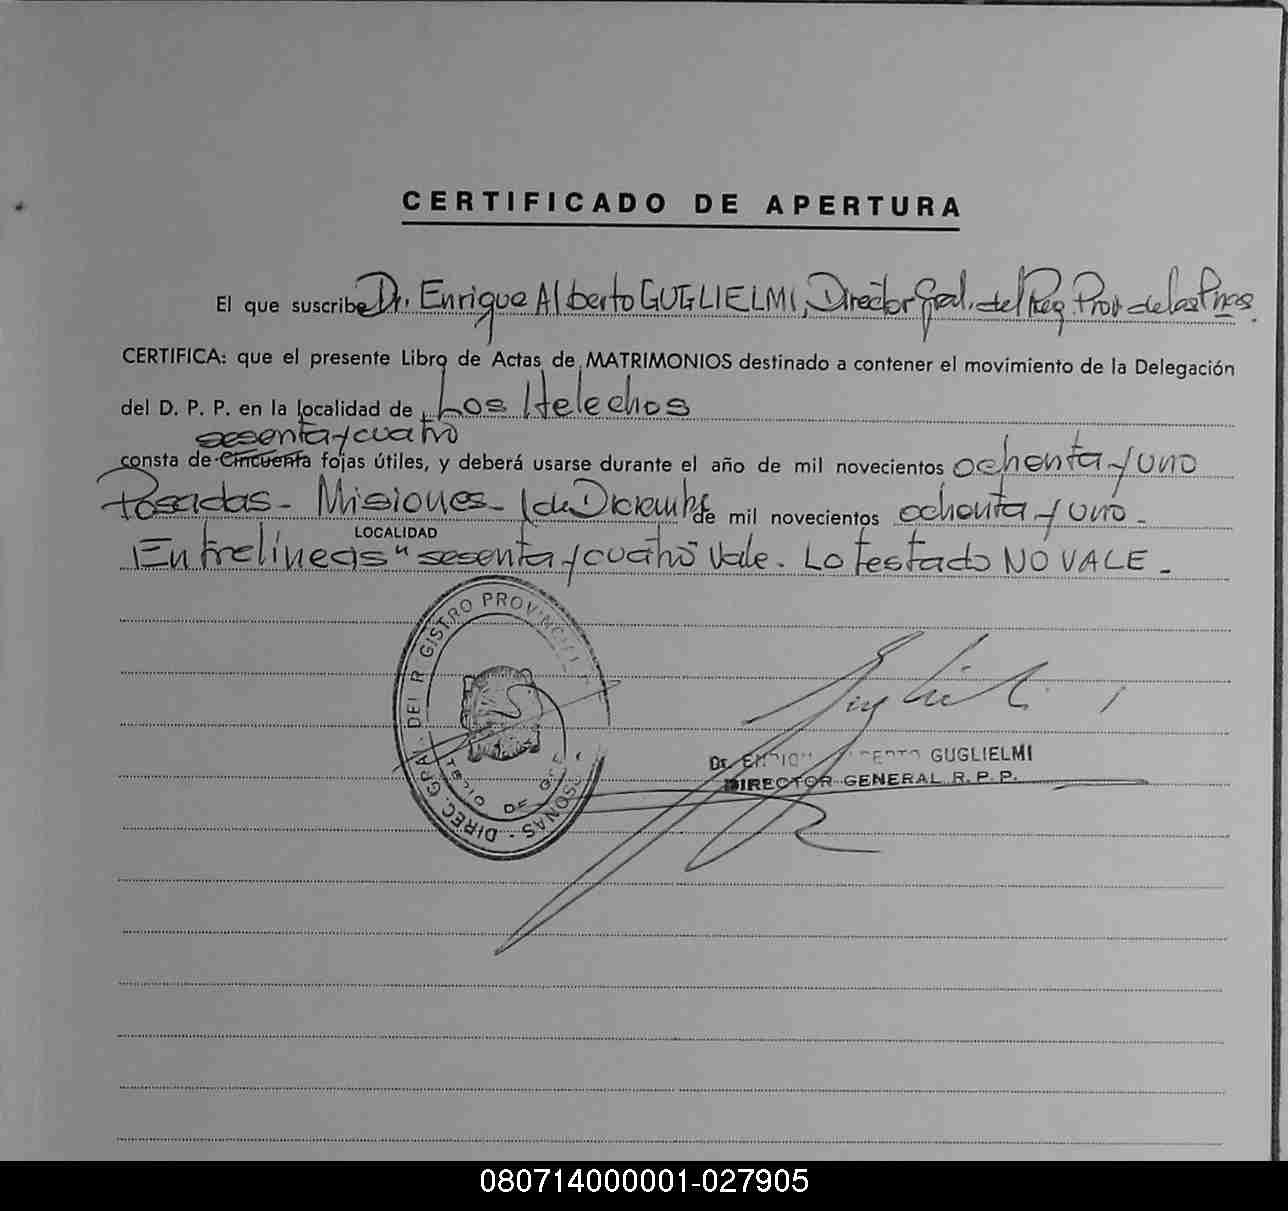 CERTIFICADO DE APERTURA
El que suscribe Dr. Enrique Alberto GUGLIELMI, Director Gral. del Reg. Prov. de las Pnas.
CERTIFICA: que el presente Libro de Actas de MATRIMONIOS destinado a contener el movimiento de la Delegación
del D. P. P. en la localidad de Los Helechos
sesenta y cuatro
consta de Cincuenta fojas útiles, y deberá usarse durante el año de mil novecientos ochenta y uno
Posadas - Misiones - 1 de Diciembre de mil novecientos ochenta y uno -
LOCALIDAD
Entrelíneas "sesenta y cuatro vale. Lo testado NO VALE -
DIREC. GRAL. DEL R GISTRO PROVINCIAL DE
SONAS -
Dr. GUGLIELMI
DIRECTOR GENERAL R. P. P.
080714000001-027905